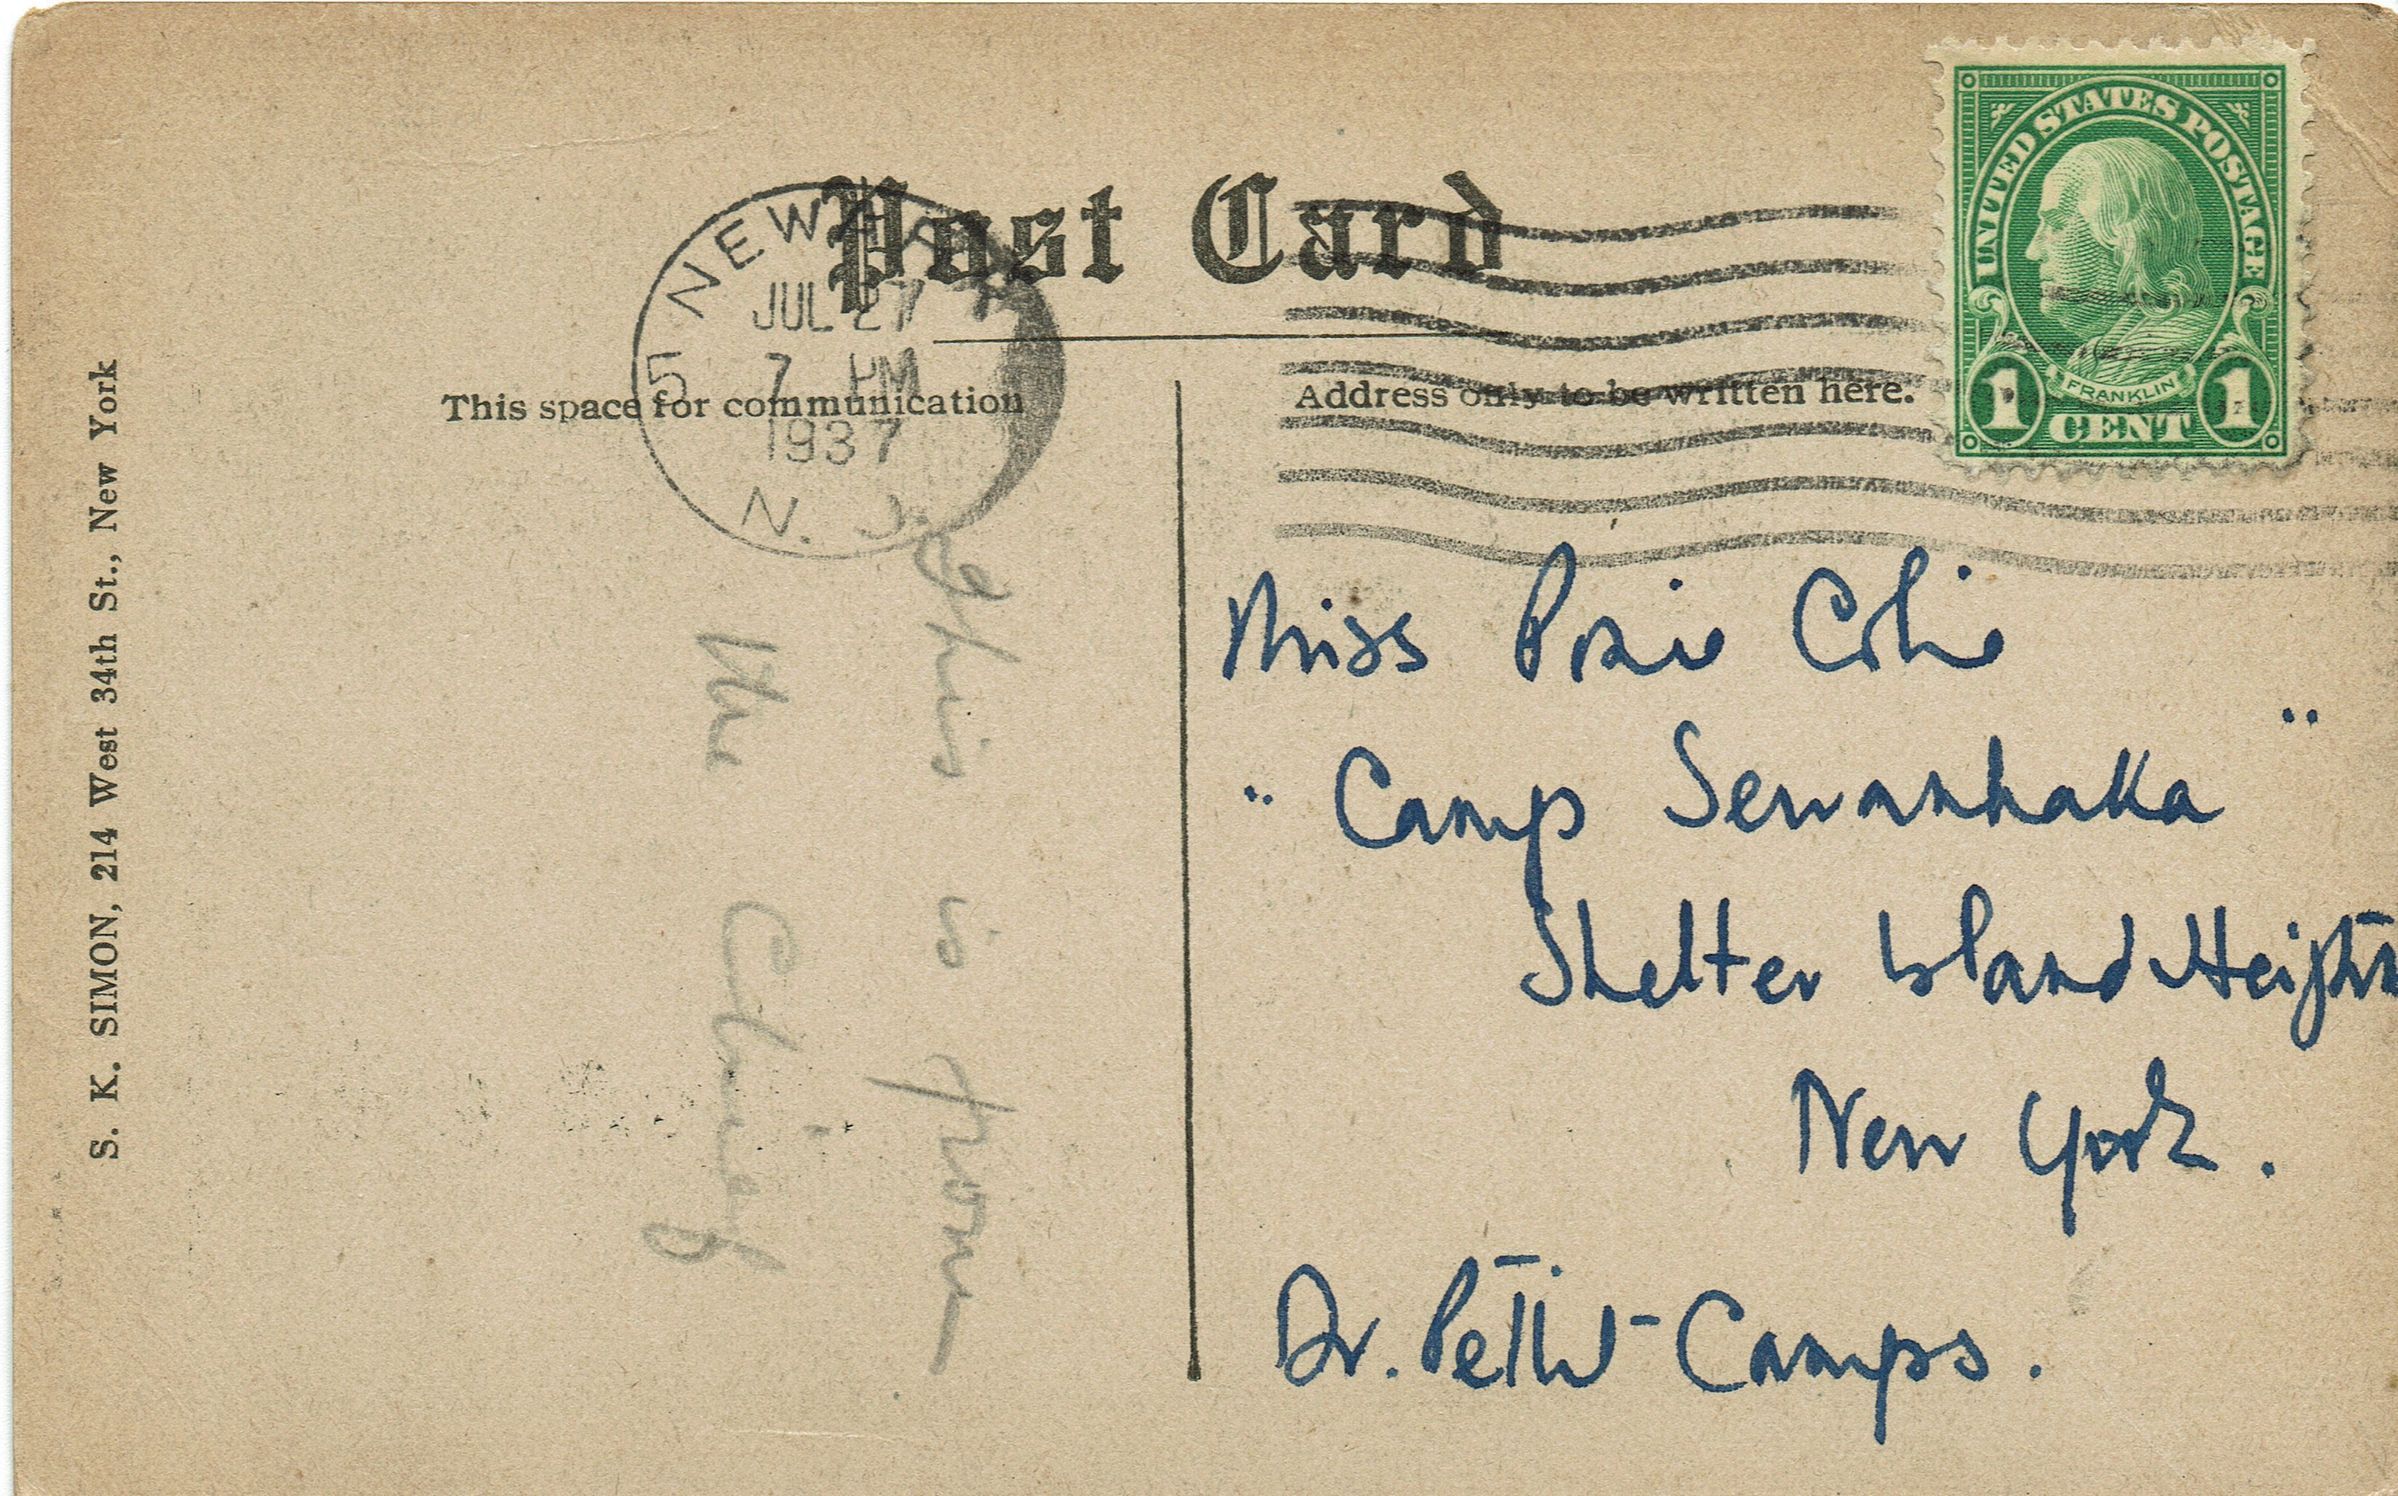 Post Card
This space for communication
Address only to be written here.
S. K. SIMON, 214 West 34th St., New York
NEWARK
5
JUL 27
7 PM
1937
N. J.
UNITED STATES POSTAGE
FRANKLIN
1 CENT 1
this is from
the
Miss
"Camp Sewanhaka"
Shelter Island Heights
New York.
Dr. Pettit Camps.